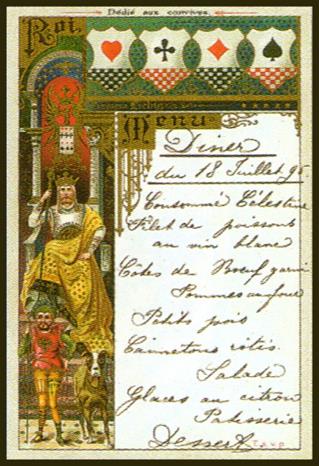 Dédié aux convives.
Roi
Menu
Diner
du 18 Juillet 95
Consommé Célestine
Filet de poissons
au vin blanc
Côtes de Bœuf garni
Pommes au four
Petits pois
Cannetons rôtis.
Salade
Glaces au citron
Patisserie
Dessert